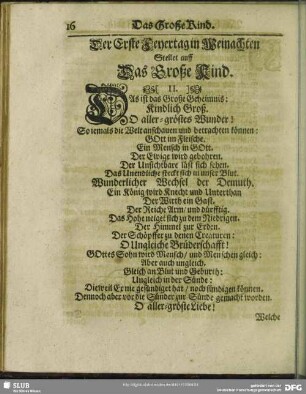 16
Das Große Kind.
Der Erste Feyertag in Weinachten
Stellet auff
Das Große Kind.
II.
DAs ist das Große Geheimnis:
Kindlich Groß.
O aller-gröstes Wunder!
So iemals die Welt anschauen und betrachten können:
GOtt im Fleische.
Ein Mensch in GOtt.
Der Ewige wird gebohren.
Der Unsichtbare läst sich sehen.
Das Unendliche steckt sich in unser Blut.
Wunderlicher Wechsel der Demuth,
Ein König wird Knecht und Unterthan
Der Wirth ein Gast.
Der Reiche Arm/ und dürfftig.
Das Hohe neiget sich zu dem Niedrigen.
Der Himmel zur Erden.
Der Schöpffer zu denen Creaturen:
O Ungleiche Brüderschafft!
GOttes Sohn wird Mensch/ und Menschen gleich:
Aber auch ungleich.
Gleich an Blut und Geburth:
Ungleich in der Sünde:
Dieweil Er nie gesündiget hat/ noch sündigen können.
Dennoch aber vor die Sünder zur Sünde gemacht worden.
O aller-gröste Liebe!
Welche
SLUB
DFG